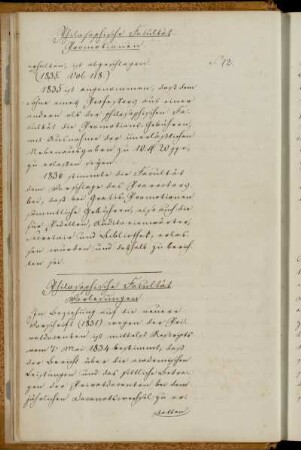 Philosophische Facultät
Promotionen
erhalten, ist abgeschlagen
(1835 Vol. 118.)
1835 ist angenommen, daß dem
Sohne eines Professors aus einer
andern als der philosophischen Fa-
cultät die Promotions-Gebühren,
mit Ausnahme der unerläßlichen
Nebenausgaben zu
zu erlassen seyen.
1836 stimmte die Facultät
dem Vorschlage des Prorectors
bei, daß bei Gratis-Promotionen
sämmtliche Gebühren, also auch die
für Pedellen,
Secretair und Bibliothek, erlas-
sen würden und deßhalb zu berich-
ten sei.
Philosophische Facultät
Vorlesungen
In Beziehung auf die neuere
Vorschrift (1831) wegen der Pri-
vatdocenten ist mittelst Rescripts
vom 7. Mai 1834 bestimmt, daß
der Bericht über die academischen
Leistungen und das sittliche Betra-
gen der Privatdocenten bei dem
jährlichen Decanatswechsel zu er-
statten